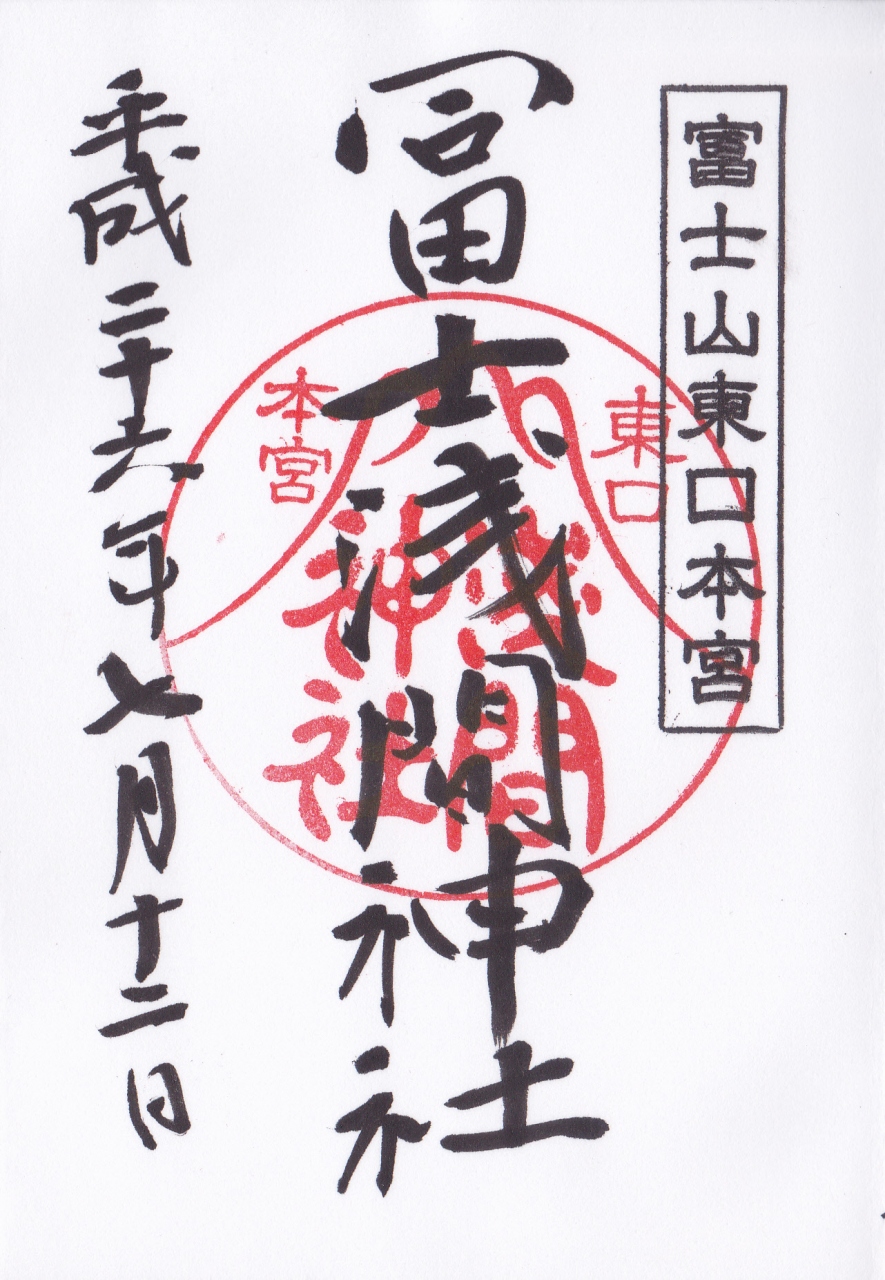 富士山東口本宮
冨士浅間神社
東口
本宮
浅間
神社
平成二十六年七月十二日